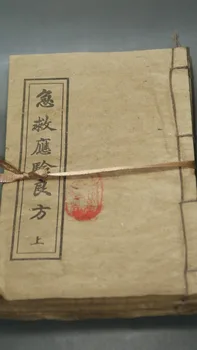 急救應驗良方 上